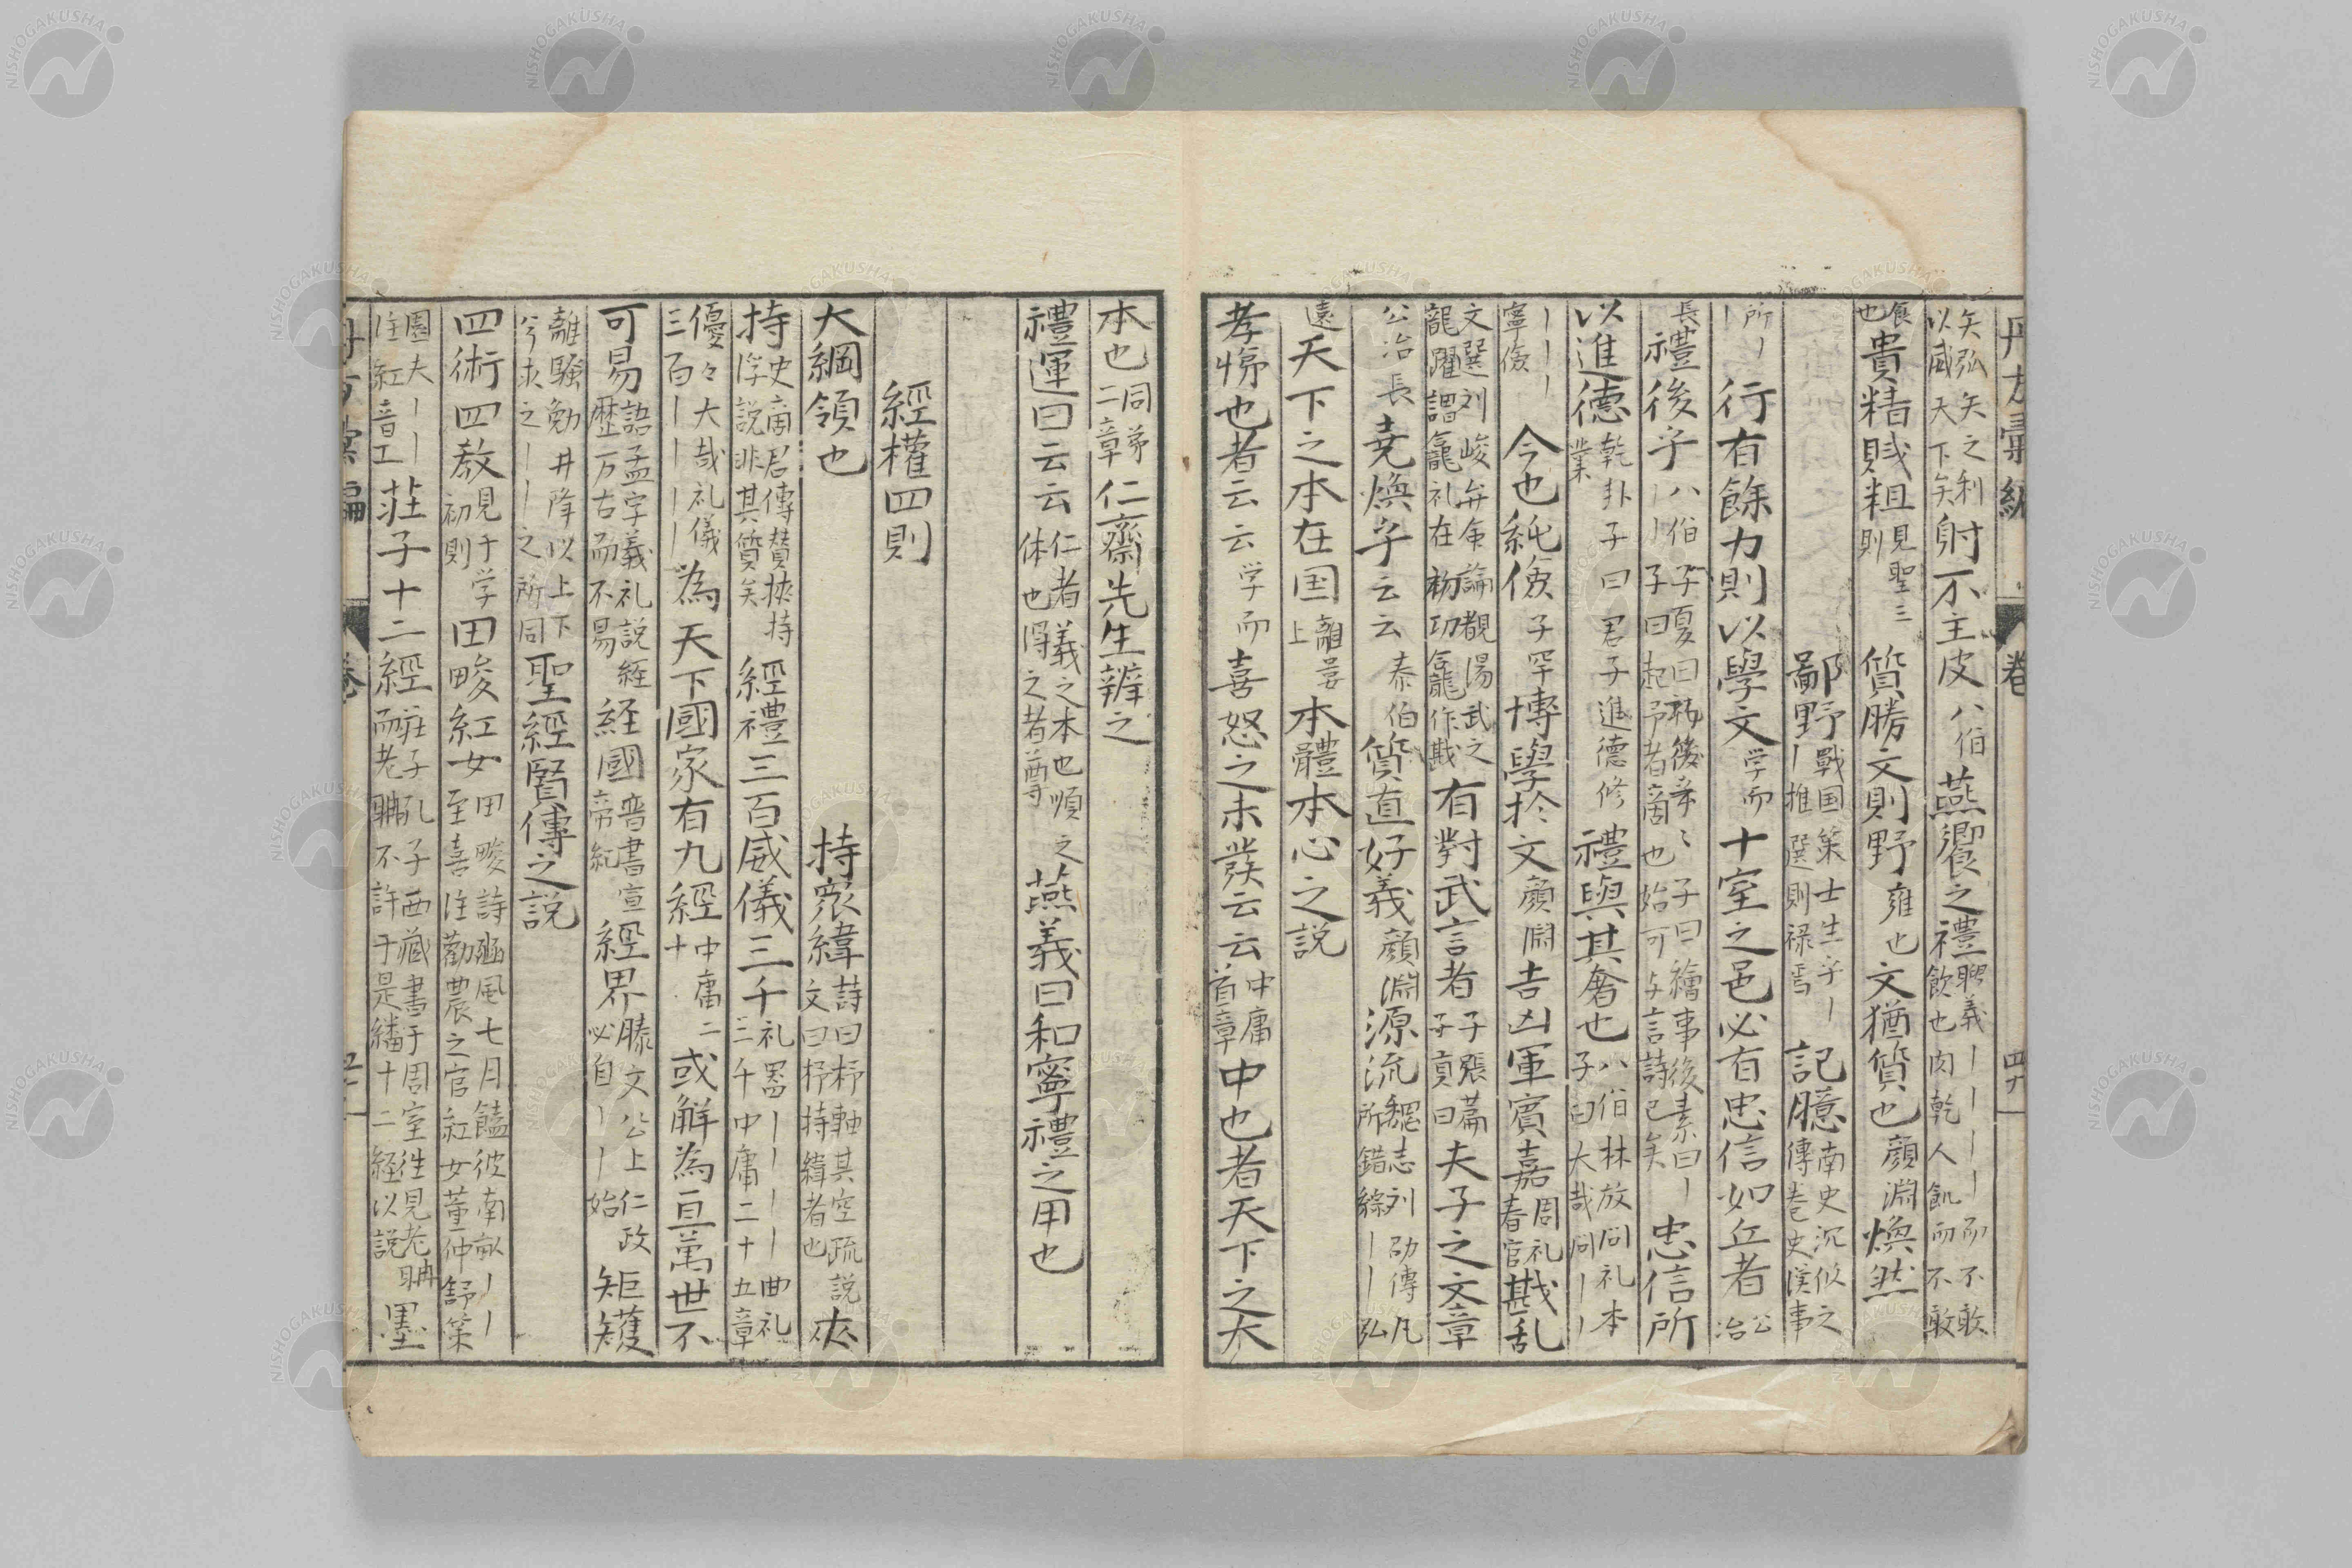 矢弘矢之利以威天下矢射不主皮八伯燕饗之禮聘義｜｜｜｜而不敢飲也肉乾人飢而不敢
食也貴精賤粗見聖三則質勝文則野雍也文猶質也顔淵煥然
鄙野戰国策士生乎｜｜推選則禄焉記臆南史沉攸之傳巻史漢事
所｜｜行有餘力則以學文学而十室之邑必有忠信如丘者公冶
長禮後乎八伯子夏曰礼後乎｜｜子曰起予者商也始可与言詩已矣子曰繪事後素曰｜忠信所
以進德乾卦子曰君子進德修業禮與其奢也八伯林放问礼本子曰大哉问｜｜
｜｜｜寧儉今也純儉子罕博學於文顔淵吉凶軍賓嘉周礼春官戡乱
文選刘峻弁命論覩湯武之龍躍謂龕礼在初功龕作戡有對武言者子張篇子貢曰夫子之文章
公冶長尭煥乎云云泰伯質直好義顔淵源流魏志刘劭傳凡所錯綜｜｜弘
遠天下之本在国離婁上本體本心之説
孝悌也者云云学而喜怒之未發云云中庸首章中也者天下之大
本也同第二章仁齋先生辨之
禮運曰云云仁者義之本也順之体也得之者尊燕義曰和寧禮之用也
經權四則
大綱領也持衆緯詩曰杼軸其空疏説文曰杼持緯者也夾
持史商君傳賛挾持浮説非其質矣經禮三百威儀三千礼器｜｜｜｜曲礼三千中庸二十五章
優々大哉礼儀三百｜｜｜｜為天下國家有九經中庸二十或解為亘萬世不
可易語孟字義礼説経歴万古而不易経國晋書宣帝紀經界滕文公上仁政必自｜｜始矩矱
離騒勉升降以上下兮求之｜｜之所同聖經賢傳之説
四術四教見于学初則田畯紅女田畯詩豳風七月饁彼南畝｜｜至喜注勸農之官紅女董仲舒策
園夫｜｜注紅音工荘子十二經荘子孔子西藏書于周室往見老聃而老聃不許于是繙十二経以説墨